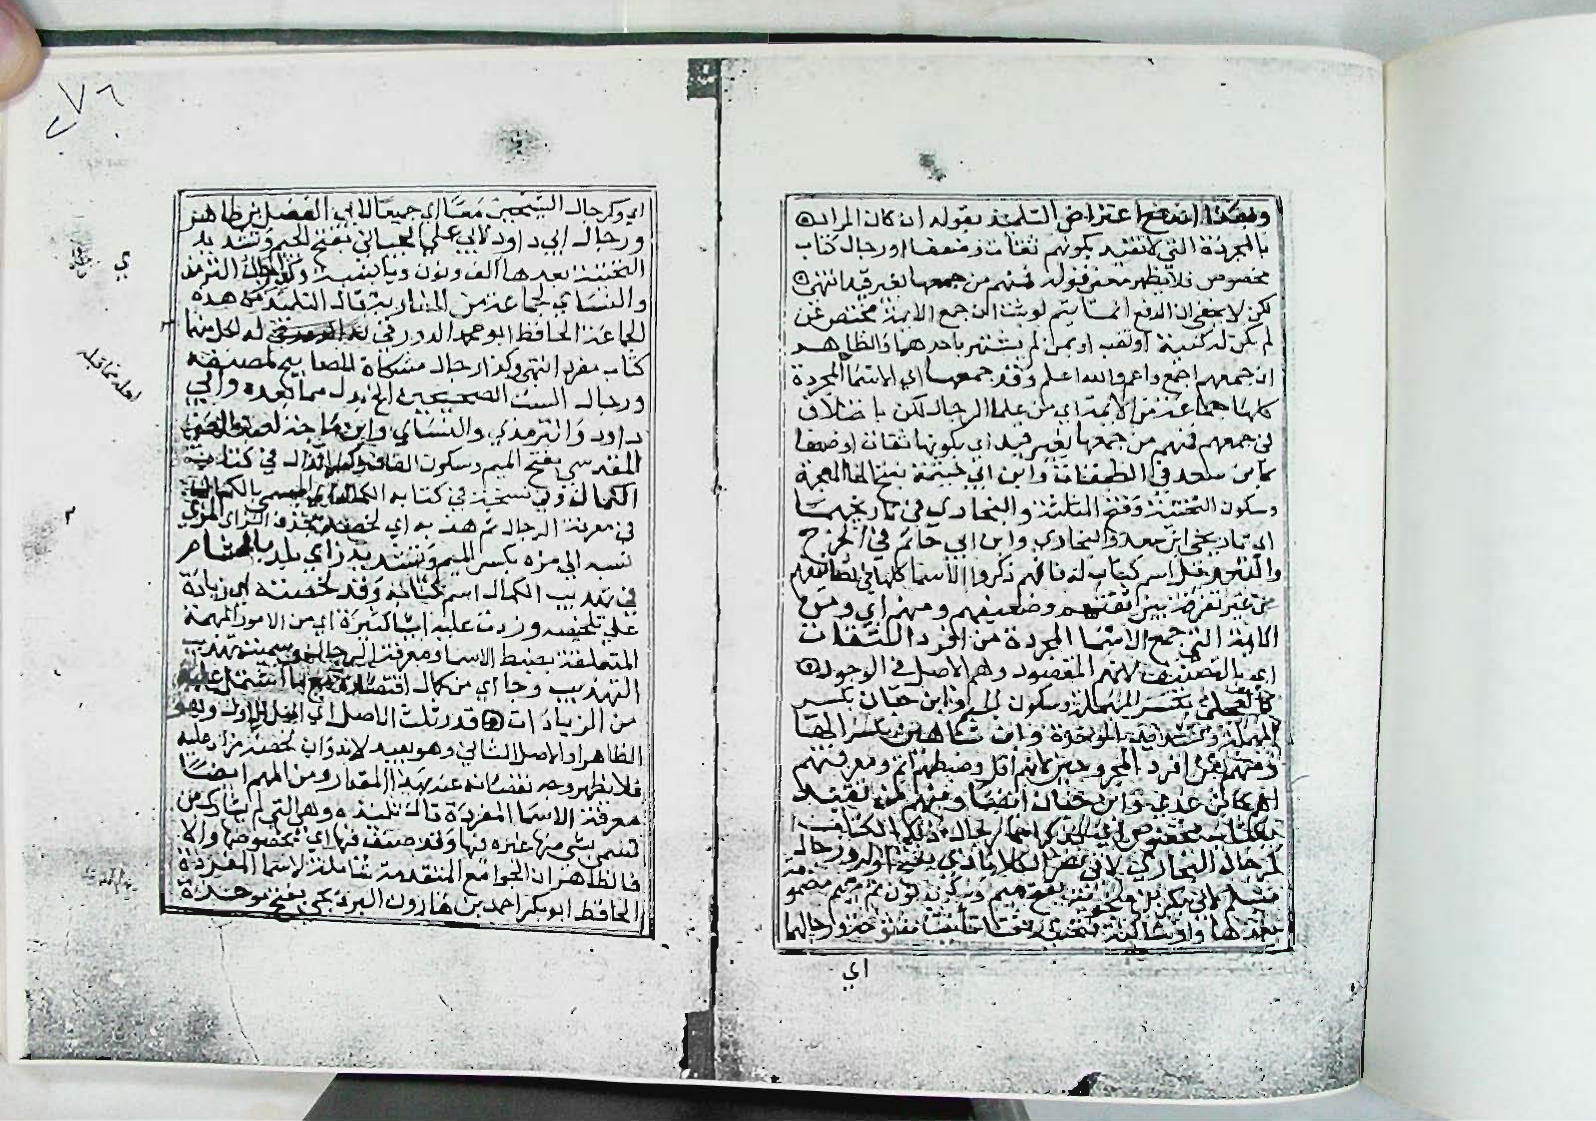 وبهذا اندفع اعتراض التلميذ بقوله ان كان المراد
بالمجردة التي لا تقيد بكونهم ثقات وضعفا او رجال كتاب
مخصوص فلا يظهر معنى قوله فمنهم من جمعها بغير قيد انتهى
لكن لا يخفى ان الدفع انما يتم لو ثبت ان جمع الايمة مختص عن
لم يكن له كنية او لقب او بمن لم يشتهر باحدهما والظاهر
ان جمعهم اجمع واعم والله اعلم وقد جمعها اي الاسما المجردة
كلها جماعة من الايمة اي من علما الرجال لكن باختلاف
في جمعهم فمنهم من جمعها بغير قيد اي بكونها ثقات او ضعفا
كابن سعد في الطبقات وابن ابي خيثمة بفتح الخا المعجمة
وسكون التحتية وفتح المثلثة والبخاري في تاريخيهما
اي تاريخي ابن معد والبخاري وابن ابي حاتم في الجرح
والتعديل اسم كتاب له فانهم ذكروا الاسما كلها في
من غير تفرقة بين ثقتهم وضعيفهم ومنهم اي ومن
الايمة التي جمع الاسما المجردة من افرد الثقات
اي بالتصنيف لانهم المقصود وهم الاصل في الوجود
كالعجلي بكسر المهملة وسكون الجيم وابن حبان بكسر
المهملة وتشديد الموحدة وابن شاهين بكسر الها
ومنهم من افرد المجروحين لانهم اقل وضبطهم اتم ومعرفتهم
اهم كابن عدي وابن حبان ايضا ومنهم من تقيد
بكتاب مخصوص اي لذكر اجمال رجال ذلك الكتاب
كرجال البخاري لابي نصر الكلاباذي بفتح اوله ورجال
مسلم لابي بكر بن منجويه بفتح ميم وسكون نون ثم جيم مضمومة
بعدها واو ساكنة فتحتية مفتوحة ورجالهما
اي
٢٧٦
اي وكرجال الشيخين معا اي جميعا لابي الفضل بن طاهر
ورجال ابي داود لابي علي الجياني بفتح الجيم وتشديد
التحتية بعدها الف ونون ويا نسبة وكذا رجال الترمذي
والنسائي لجماعة من المغاربة قال التلميذ من هذه
الجماعة الحافظ ابو محمد الدورقي له لكل منهما
كتاب مفرد انتهى وكذا رجال مشكاة المصابيح لمصنفه
ورجال الستة الصحيحين الخ بدل مما بعده وابي
داود والترمذي والنسائي وابن ماجة لعبد الغني
المقدسي بفتح الميم وسكون القاف وكسر الدال في كتابه
الكمال وفي نسخة في كتابه الكمال اي المسمى بالكمال
في معرفة الرجال ثم هذبه اي لخصه بحذف الزائد المزي
نسبه الى مزه بكسر الميم وتشديد زاي بلد بالشام
في تهذيب الكمال اسم كتابه وقد لخصته اي زيادة
على تلخيصه وزدت عليه اشيا كثيرة اي من الامور المهمة
المتعلقة بضبط الاسما ومعرفة الرجال وسميته تهذيب
التهذيب وجا اي من كمال اقتصاره مع ما اشتمل عليه
من الزيادات قدر ثلث الاصل اي الاصل الاول وهو
الظاهر او الاصل الثاني وهو بعيد لانه واب لخصته مزاد عليه
فلا يظهر وجه نقصانه عنه بهذا المقدار ومن المهم ايضا
معرفة الاسما المفردة قال تلميذه وهي التي لم يشارك من
تسمى بشي منها غيره فيها وقد صنف فيها اي بخصوصها والا
فالظاهر ان الجوامع المتقدمة شاملة لاسما المفردة
الحافظ ابو بكر احمد بن هارون البرديجي بفتح موحدة